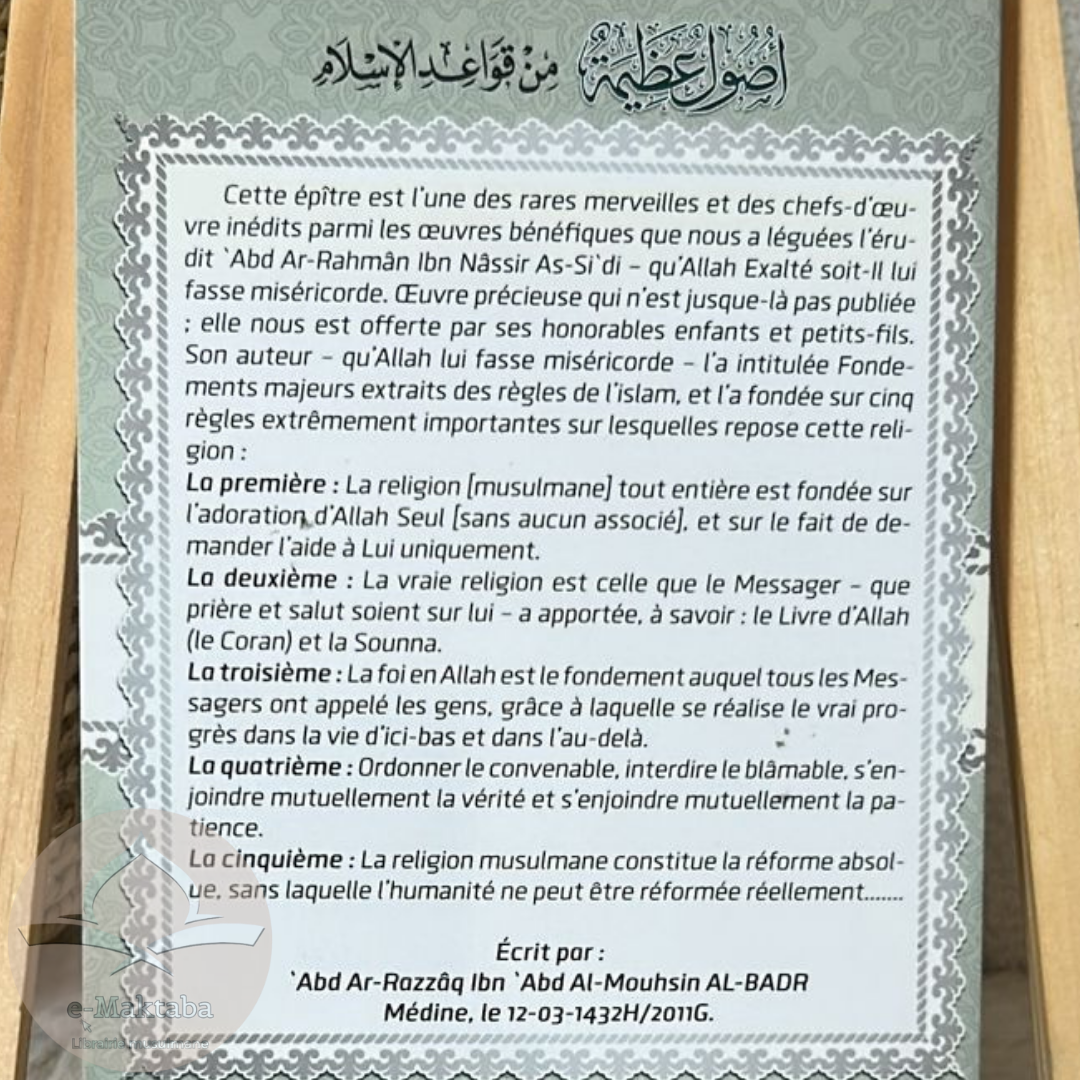 أُصُولٌ عَظِيمَةٌ مِنْ قَوَاعِدِ الإِسْلَامِ
Cette épître est l'une des rares merveilles et des chefs-d'œu-
vre inédits parmi les œuvres bénéfiques que nous a léguées l'éru-
dit `Abd Ar-Rahmân Ibn Nâssir As-Si`di – qu'Allah Exalté soit-Il lui
fasse miséricorde. Œuvre précieuse qui n'est jusque-là pas publiée
; elle nous est offerte par ses honorables enfants et petits-fils.
Son auteur – qu'Allah lui fasse miséricorde – l'a intitulée Fonde-
ments majeurs extraits des règles de l'islam, et l'a fondée sur cinq
règles extrêmement importantes sur lesquelles repose cette reli-
gion :
La première : La religion [musulmane] tout entière est fondée sur
l'adoration d'Allah Seul [sans aucun associé], et sur le fait de de-
mander l'aide à Lui uniquement.
La deuxième : La vraie religion est celle que le Messager – que
prière et salut soient sur lui – a apportée, à savoir : le Livre d'Allah
(le Coran) et la Sounna.
La troisième : La foi en Allah est le fondement auquel tous les Mes-
sagers ont appelé les gens, grâce à laquelle se réalise le vrai pro-
grès dans la vie d'ici-bas et dans l'au-delà.
La quatrième : Ordonner le convenable, interdire le blâmable, s'en-
joindre mutuellement la vérité et s'enjoindre mutuellement la pa-
tience.
La cinquième : La religion musulmane constitue la réforme absol-
ue, sans laquelle l'humanité ne peut être réformée réellement.......
Écrit par :
`Abd Ar-Razzâq Ibn `Abd Al-Mouhsin AL-BADR
Médine, le 12-03-1432H/2011G.
e-Maktaba
Librairie musulmane